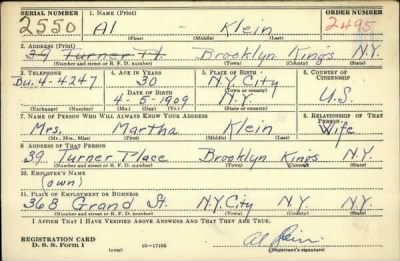 SERIAL NUMBER 1. NAME (Print) ORDER NUMBER
2550 Al Klein 2495
(First) (Middle) (Last)
2. ADDRESS (Print)
39 Turner Pl. Brooklyn Kings N.Y.
(Number and street or R. F. D. number) (Town) (County) (State)
3. TELEPHONE 4. AGE IN YEARS 5. PLACE OF BIRTH 6. COUNTRY OF CITIZENSHIP
Bu. 4-4247 30 N.Y. City
(Town or county)
DATE OF BIRTH
4-5-1909 N.Y. U.S.
(Exchange) (Number) (Mo.) (Day) (Yr.) (State or country)
7. NAME OF PERSON WHO WILL ALWAYS KNOW YOUR ADDRESS 8. RELATIONSHIP OF THAT PERSON
Mrs. Martha Klein Wife
(Mr., Mrs., Miss) (First) (Middle) (Last)
9. ADDRESS OF THAT PERSON
39 Turner Place Brooklyn Kings N.Y.
(Number and street or R. F. D. number) (Town) (County) (State)
10. EMPLOYER'S NAME
(own)
11. PLACE OF EMPLOYMENT OR BUSINESS
368 Grand St. N.Y. City N.Y. N.Y.
(Number and street or R. F. D. number) (Town) (County) (State)
I AFFIRM THAT I HAVE VERIFIED ABOVE ANSWERS AND THAT THEY ARE TRUE.
REGISTRATION CARD
D. S. S. Form 1 (over) 16-17105 Al Klein
(Registrant's signature)